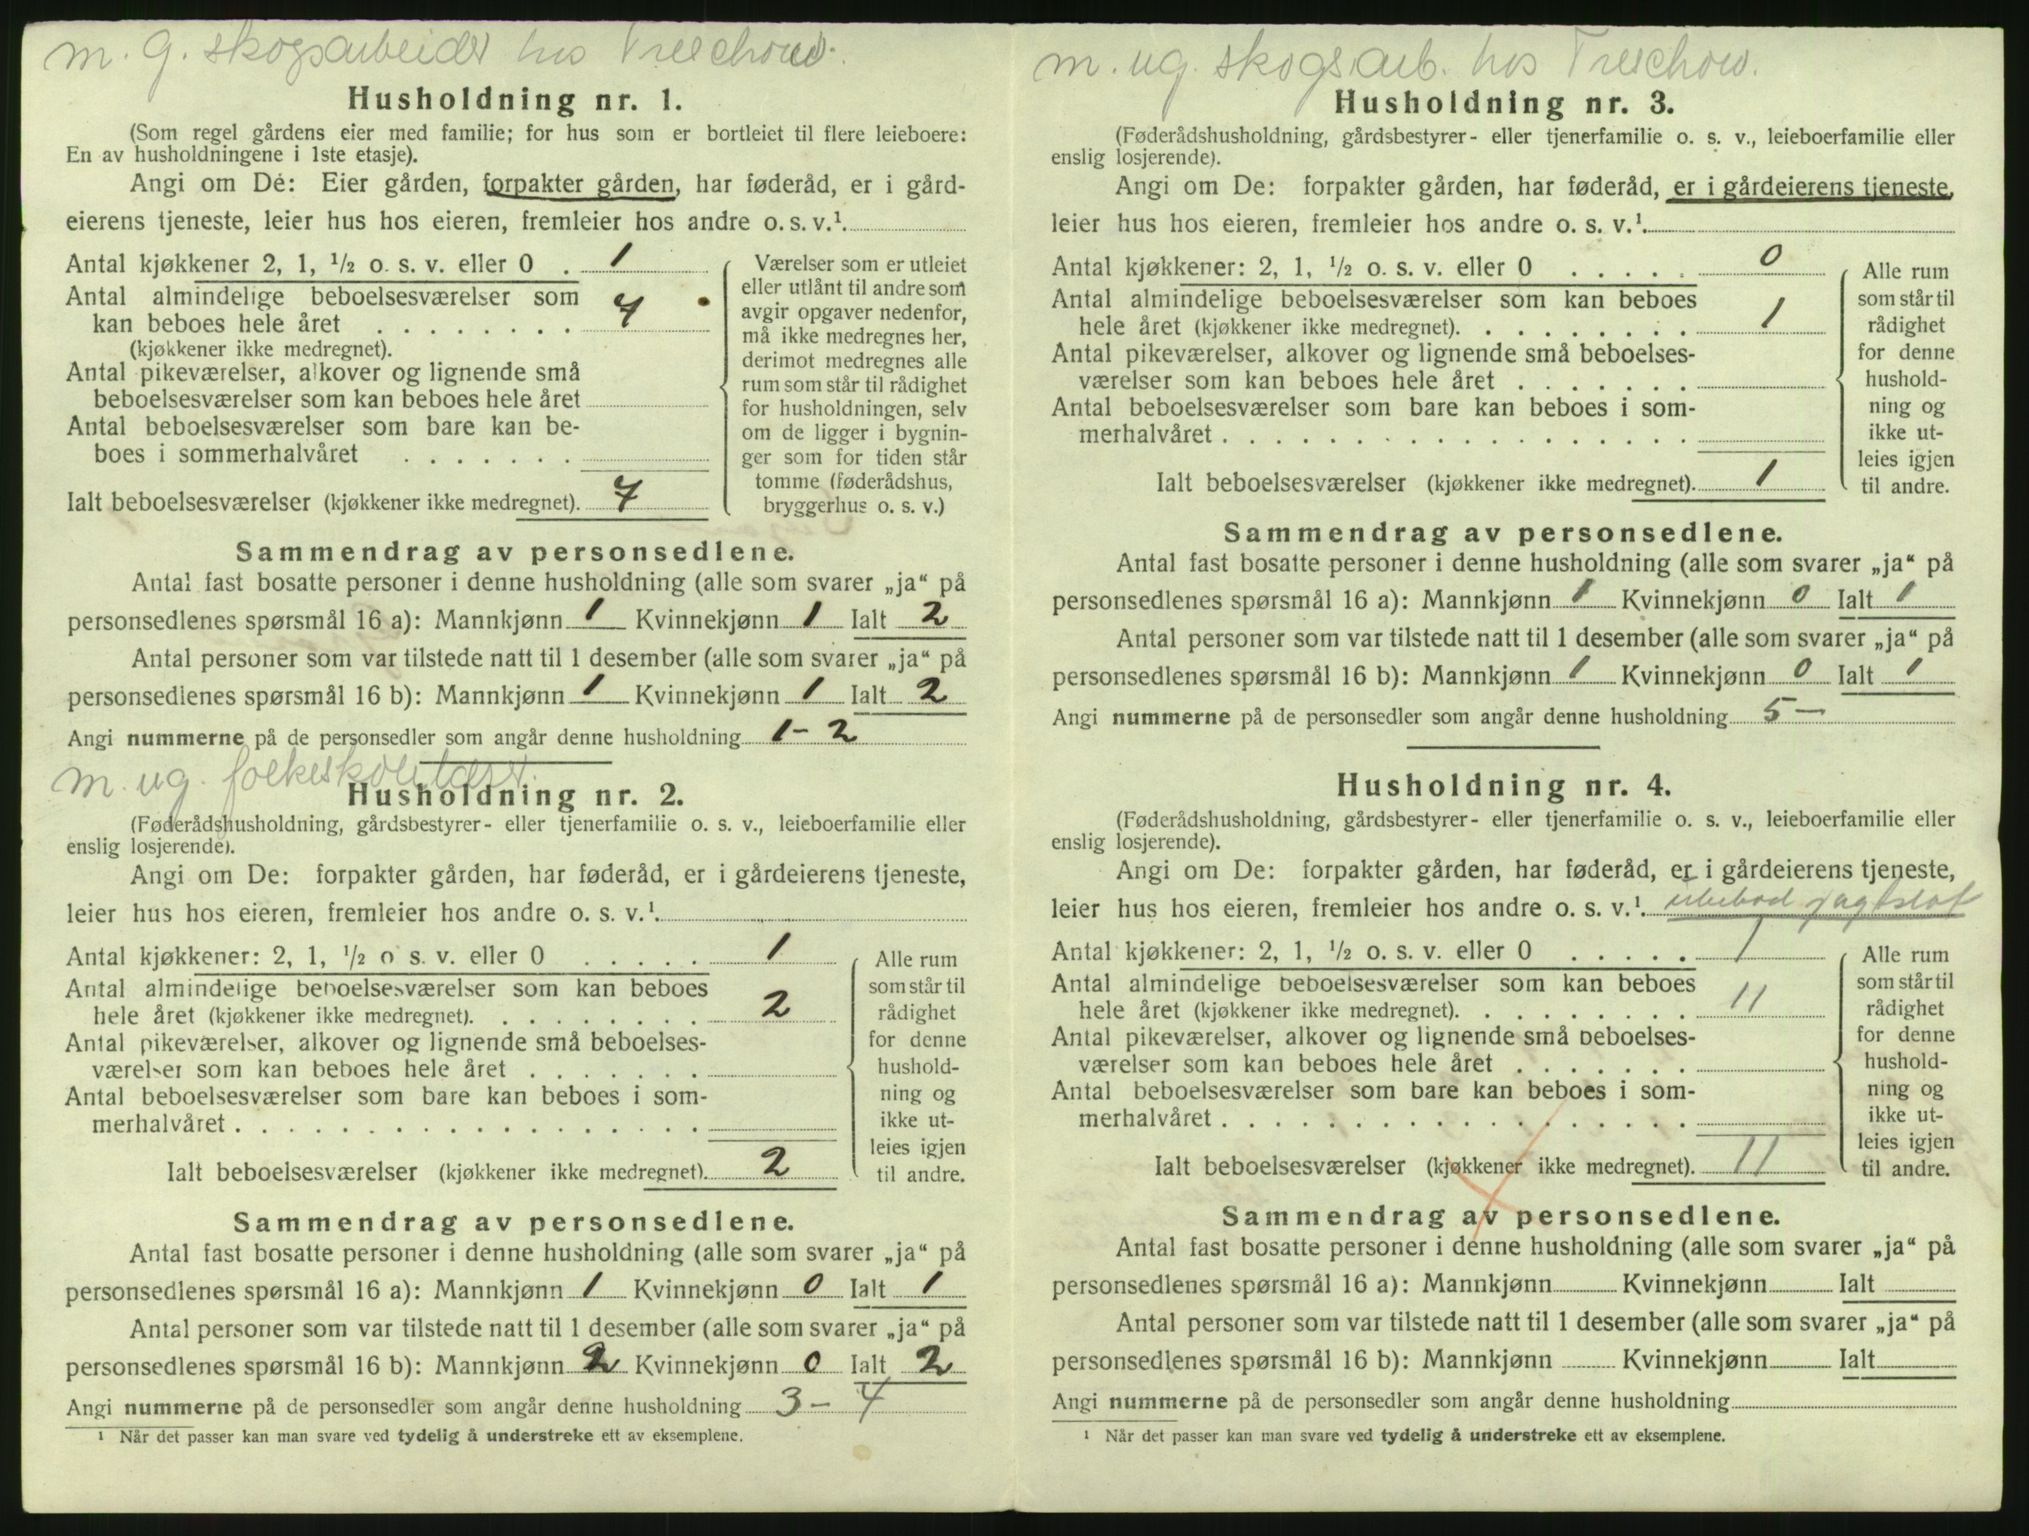 m. g. skogsarbeider hos Treschow.
Husholdning nr. 1.
(Som regel gårdens eier med familie; for hus som er bortleiet til flere leieboere:
En av husholdningene i 1ste etasje).
Angi om Dé: Eier gården, forpakter gården, har føderåd, er i gård-
eierens tjeneste, leier hus hos eieren, fremleier hos andre o. s. v.¹
Antal kjøkkener 2, 1, ½ o. s. v. eller 0 . 1
Antal almindelige beboelsesværelser som
kan beboes hele året . . . . . . . . 7
(kjøkkener ikke medregnet).
Antal pikeværelser, alkover og lignende små
beboelsesværelser som kan beboes hele året
Antal beboelsesværelser som bare kan be-
boes i sommerhalvåret . . . . . . .
Ialt beboelsesværelser (kjøkkener ikke medregnet). 7
Værelser som er utleiet
eller utlånt til andre som
avgir opgaver nedenfor,
må ikke medregnes her,
derimot medregnes alle
rum som står til rådighet
for husholdningen, selv
om de ligger i bygnin-
ger som for tiden står
tomme (føderådshus,
bryggerhus o. s. v.)
Sammendrag av personsedlene.
Antal fast bosatte personer i denne husholdning (alle som svarer „ja“ på
personsedlenes spørsmål 16 a): Mannkjønn 1 Kvinnekjønn 1 Ialt 2
Antal personer som var tilstede natt til 1 desember (alle som svarer „ja“ på
personsedlenes spørsmål 16 b): Mannkjønn 1 Kvinnekjønn 1 Ialt 2
Angi nummerne på de personsedler som angår denne husholdning 1 - 2
m. ug. folkeskolelærer.
Husholdning nr. 2.
(Føderådshusholdning, gårdsbestyrer- eller tjenerfamilie o. s. v., leieboerfamilie eller
enslig losjerende).
Angi om De: forpakter gården, har føderåd, er i gårdeierens tjeneste,
leier hus hos eieren, fremleier hos andre o. s. v.¹
Antal kjøkkener: 2, 1, ½ o s. v. eller 0 . . . . . 1
Antal almindelige beboelsesværelser som kan beboes
hele året (kjøkkener ikke medregnet). . . . . . . . . 2
Antal pikeværelser, alkover og lignende små beboelses-
værelser som kan beboes hele året . . . . . . .
Antal beboelsesværelser som bare kan beboes i som-
merhalvåret . . . . . . . . . . . . . . . . . .
Ialt beboelsesværelser (kjøkkener ikke medregnet). 2
Alle rum
som står til
rådighet
for denne
hushold-
ning og
ikke ut-
leies igjen
til andre.
Sammendrag av personsedlene.
Antal fast bosatte personer i denne husholdning (alle som svarer „ja“ på
personsedlenes spørsmål 16 a): Mannkjønn 1 Kvinnekjønn 0 Ialt 1
Antal personer som var tilstede natt til 1 desember (alle som svarer „ja“ på
personsedlenes spørsmål 16 b): Mannkjønn 2 Kvinnekjønn 0 Ialt 2
Angi nummerne på de personsedler som angår denne husholdning 3 - 4
¹ Når det passer kan man svare ved tydelig å understreke ett av eksemplene.
m. ug. skogsarb. hos Treschow.
Husholdning nr. 3.
(Føderådshusholdning, gårdsbestyrer- eller tjenerfamilie o. s. v., leieboerfamilie eller
enslig losjerende).
Angi om De: forpakter gården, har føderåd, er i gårdeierens tjeneste,
leier hus hos eieren, fremleier hos andre o. s. v.¹
Antal kjøkkener: 2, 1, ½ o. s. v. eller 0 . . . . . 0
Antal almindelige beboelsesværelser som kan beboes
hele året (kjøkkener ikke medregnet). . . . . . . . . 1
Antal pikeværelser, alkover og lignende små beboelses-
værelser som kan beboes hele året . . . . . . .
Antal beboelsesværelser som bare kan beboes i som-
merhalvåret . . . . . . . . . . . . . . . . . .
Ialt beboelsesværelser (kjøkkener ikke medregnet). 1
Alle rum
som står til
rådighet
for denne
hushold-
ning og
ikke ut-
leies igjen
til andre.
Sammendrag av personsedlene.
Antal fast bosatte personer i denne husholdning (alle som svarer „ja“ på
personsedlenes spørsmål 16 a): Mannkjønn 1 Kvinnekjønn 0 Ialt 1
Antal personer som var tilstede natt til 1 desember (alle som svarer „ja“ på
personsedlenes spørsmål 16 b): Mannkjønn 1 Kvinnekjønn 0 Ialt 1
Angi nummerne på de personsedler som angår denne husholdning 5 -
Husholdning nr. 4.
(Føderådshusholdning, gårdsbestyrer- eller tjenerfamilie o. s. v., leieboerfamilie eller
enslig losjerende).
Angi om De: forpakter gården, har føderåd, er i gårdeierens tjeneste,
leier hus hos eieren, fremleier hos andre o. s. v.¹ ubebod jagtslot
Antal kjøkkener: 2, 1, ½ o. s. v. eller 0 . . . . . 1
Antal almindelige beboelsesværelser som kan beboes
hele året (kjøkkener ikke medregnet). . . . . . . . . 11
Antal pikeværelser, alkover og lignende små beboelses-
værelser som kan beboes hele året . . . . . . .
Antal beboelsesværelser som bare kan beboes i som-
merhalvåret . . . . . . . . . . . . . . . . . .
Ialt beboelsesværelser (kjøkkener ikke medregnet). 11
Alle rum
som står til
rådighet
for denne
hushold-
ning og
ikke ut-
leies igjen
til andre.
Sammendrag av personsedlene.
Antal fast bosatte personer i denne husholdning (alle som svarer „ja“ på
personsedlenes spørsmål 16 a): Mannkjønn Kvinnekjønn Ialt
Antal personer som var tilstede natt til 1 desember (alle som svarer „ja“ på
personsedlenes spørsmål 16 b): Mannkjønn Kvinnekjønn Ialt
Angi nummerne på de personsedler som angår denne husholdning
¹ Når det passer kan man svare ved tydelig å understreke ett av eksemplene.